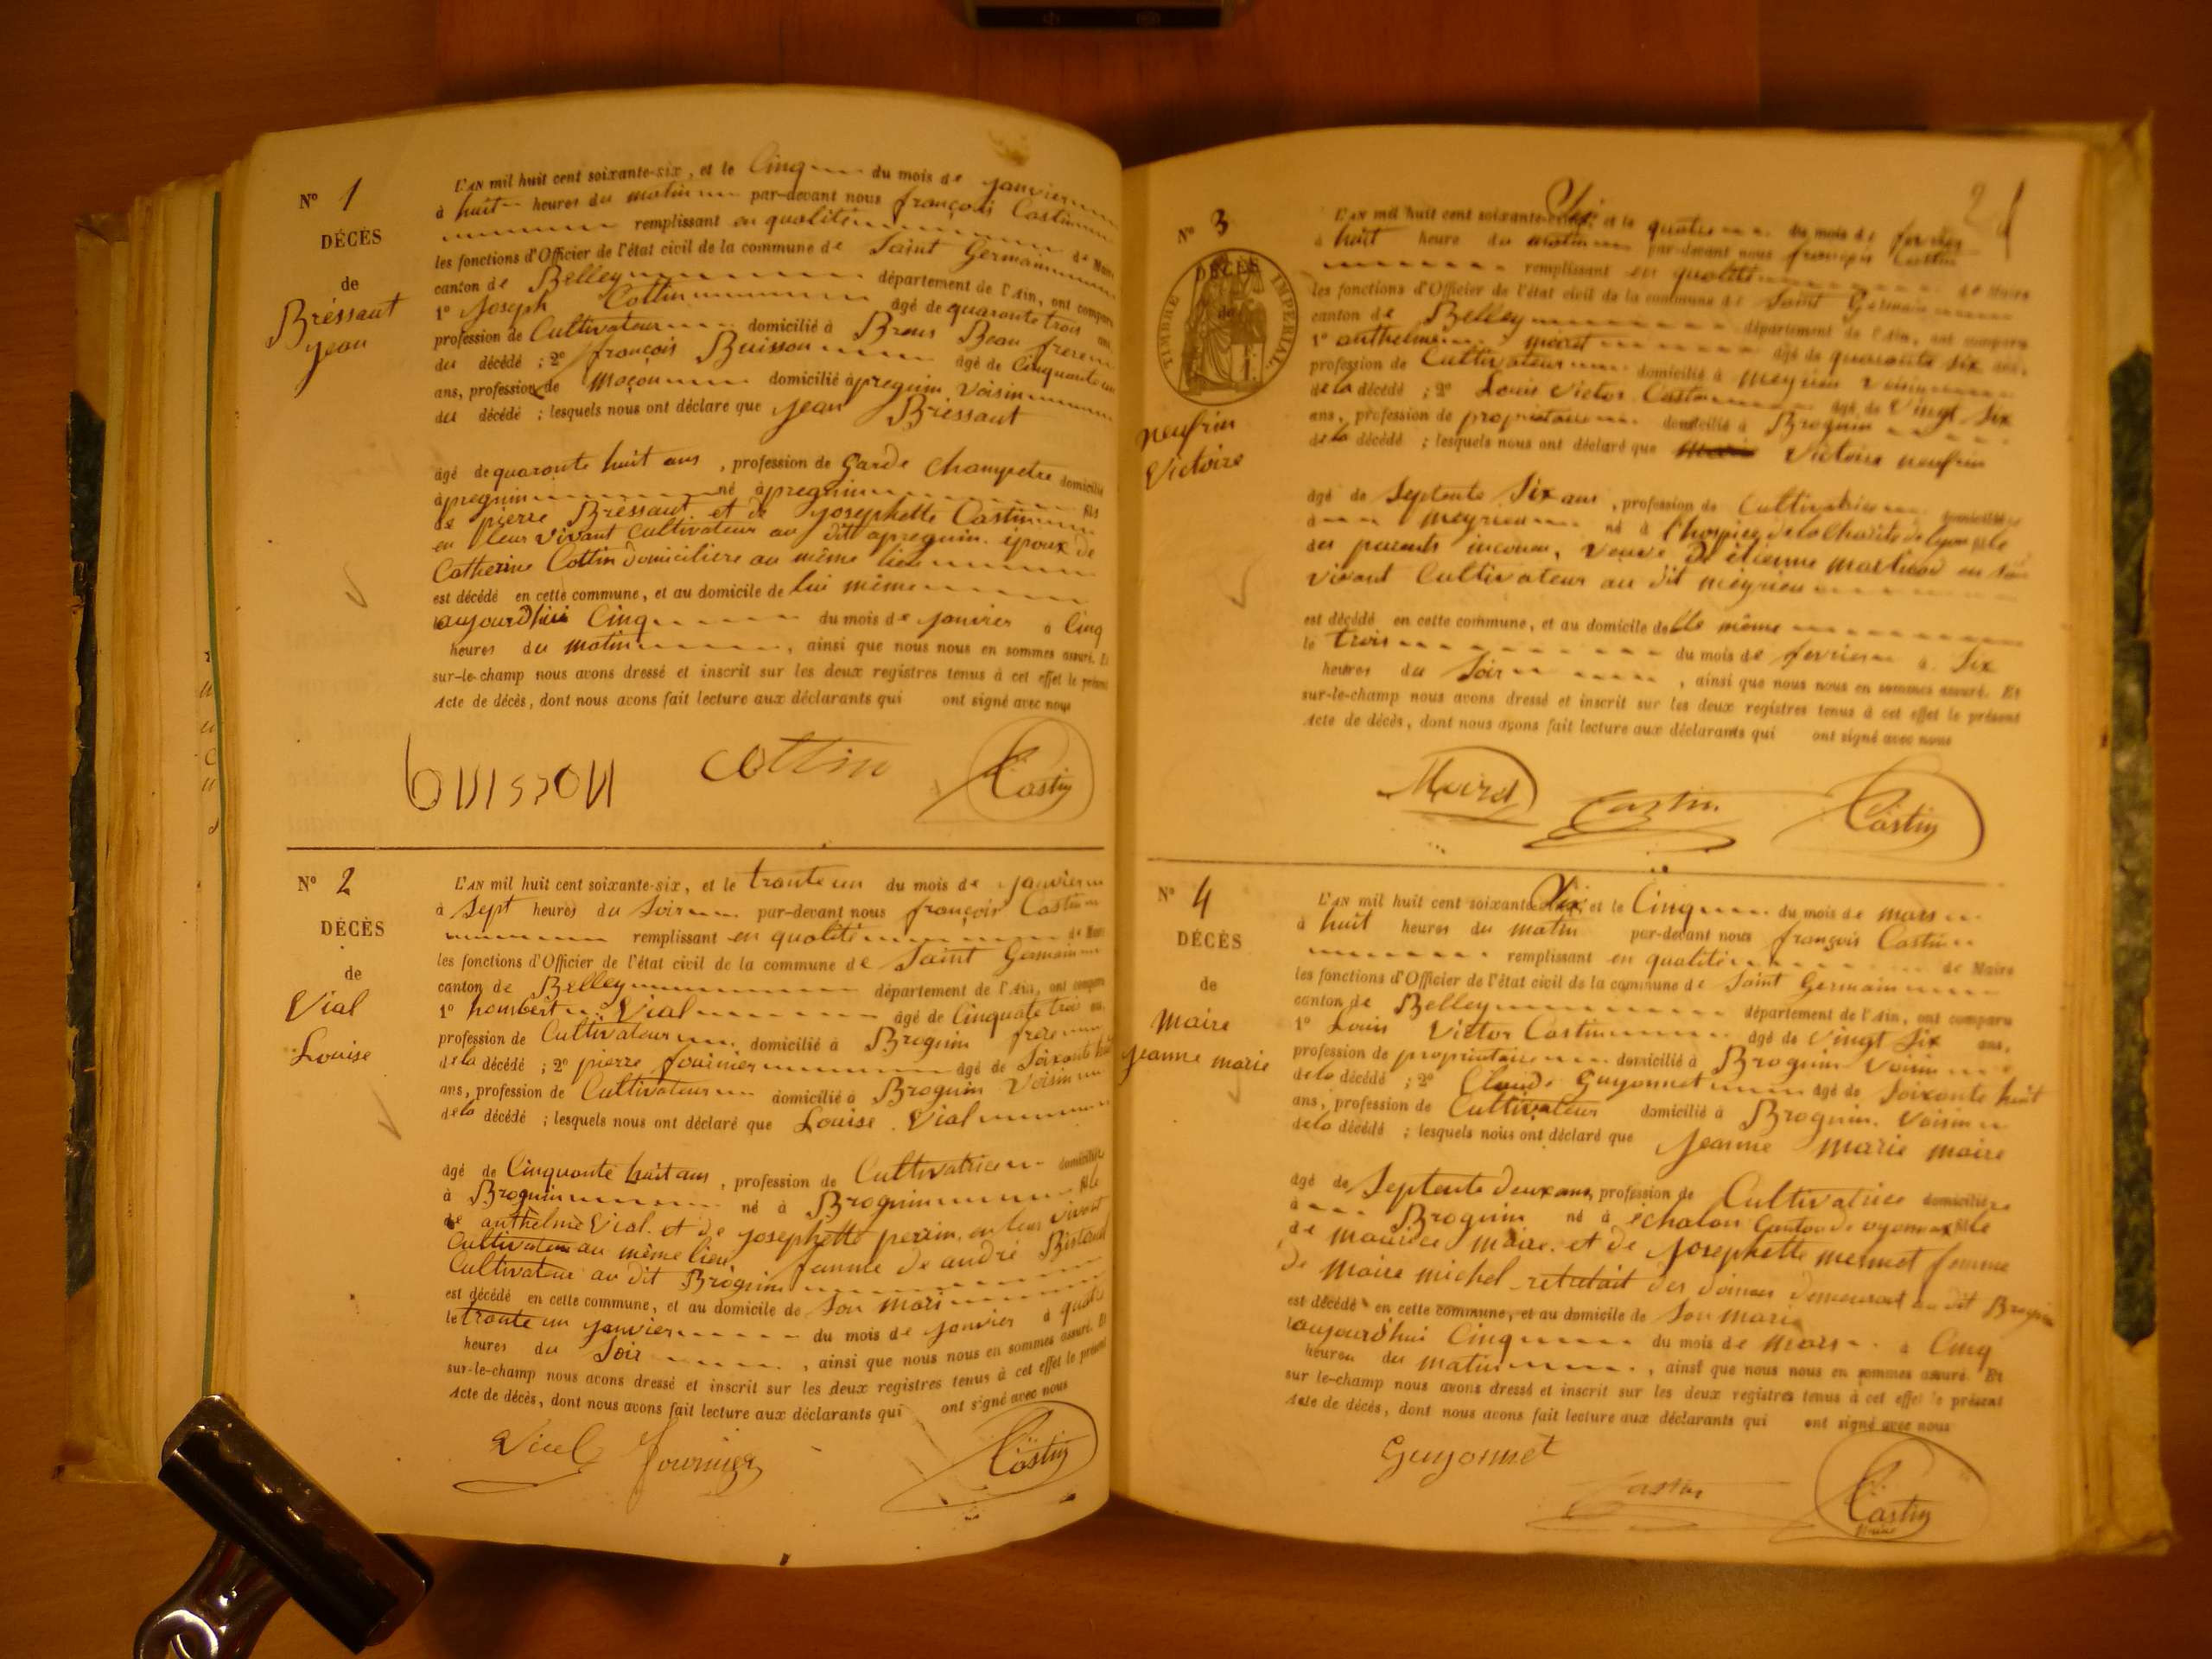 N° 1
DÉCÈS
de
Bressaut
jean
L'AN mil huit cent soixante-six, et le Cinq du mois de janvier
à huit heures du matin par-devant nous françois Castin
remplissant en qualité de Maire
les fonctions d'Officier de l'état civil de la commune de Saint Germain
canton de Belley département de l'Ain, ont comparu
1° Joseph Cottin âgé de quarante trois ans
profession de Cultivateur domicilié à Brens Beau frere
du décédé ; 2° françois Buisson âgé de Cinquante un
ans, profession de maçon domicilié àpregnin voisin
du décédé ; lesquels nous ont déclaré que jean Bressaut
âgé de quarante huit ans , profession de Garde Champetre domicilié
àpregnin né àpregnin fils
de pierre Bressaut et de josephette Castin
en leur vivant cultivateur au dit apregnin. époux de
Catherine Cottin domiciliere au même lieu
est décédé en cette commune, et au domicile de lui même
aujourd'hui Cinq du mois de janvier à Cinq
heures du matin , ainsi que nous nous en sommes assuré. Et
sur-le-champ nous avons dressé et inscrit sur les deux registres tenus à cet effet le présent
Acte de décès, dont nous avons fait lecture aux déclarants qui ont signé avec nous
buisson cottin Castin
N° 2
DÉCÈS
de
Vial
Louise
L'AN mil huit cent soixante-six, et le trante un du mois de janvier
à Sept heures du Soir par-devant nous françois Castin
remplissant en qualité de Maire
les fonctions d'Officier de l'état civil de la commune de Saint Germain
canton de Belley département de l'Ain, ont comparu
1° humbert Vial âgé de Cinquate trois ans
profession de Cultivateur domicilié à Brognin frere
de la décédé ; 2° pierre fournier âgé de Soixante huit
ans, profession de Cultivateur domicilié à Brognin Voisin
de la décédé ; lesquels nous ont déclaré que Louise Vial
âgé de Cinquante huit ans , profession de Cultivatrice domiciliée
à Brognin né à Brognin fille
de anthelme Vial. et de josephette perrin, en leur vivant
Cultivateur au même lieu, famme de andré
Cultivateur au dit Brognin
est décédé en cette commune, et au domicile de Son mari
le trante un janvier du mois de janvier à quatre
heures du Soir , ainsi que nous nous en sommes assuré. Et
sur-le-champ nous avons dressé et inscrit sur les deux registres tenus à cet effet le présent
Acte de décès, dont nous avons fait lecture aux déclarants qui ont signé avec nous
Vial fournier Castin
2
N° 3
DÉCÈS
de
TIMBRE IMPÉRIAL
neufrin
Victoire
Six
L'AN mil huit cent soixante- et le quatre du mois de fevrier
à huit heure du matin par-devant nous françois Castin
remplissant en qualité de Maire
les fonctions d'Officier de l'état civil de la commune de Saint Germain
canton de Belley département de l'Ain, ont comparu
1° anthelme âgé de quarante Six ans,
profession de Cultivateur domicilié à meyrieu voisin
de la décédé ; 2° Louis Victor Castin âgé de Vingt Six
ans, profession de propriétaire domicilié à Brognin
de la décédé ; lesquels nous ont déclaré que Victoire neufrin
âgé de Septente Six ans , profession de Cultivatrice domiciliée
à meyrieu né à l'hospice de la Charité de Lyon fille
des parents inconnu, veuve de étienne en son
vivant Cultivateur au dit meyrieu
est décédé en cette commune, et au domicile delle même
le trois du mois de fevrier à Six
heures du Soir , ainsi que nous nous en sommes assuré. Et
sur-le-champ nous avons dressé et inscrit sur les deux registres tenus à cet effet le présent
Acte de décès, dont nous avons fait lecture aux déclarants qui ont signé avec nous
Castin Castin
N° 4
DÉCÈS
de
maire
jeanne marie
L'AN mil huit cent soixante Six, et le Cinq du mois de mars
à huit heures du matin par-devant nous françois Castin
remplissant en qualité de Maire
les fonctions d'Officier de l'état civil de la commune de Saint Germain
canton de Belley département de l'Ain, ont comparu
1° Louis Victor Castin âgé de Vingt Six ans,
profession de propriétaire domicilié à Brognin Voisin
de la décédé ; 2° Claude Guyonnet âgé de Soixante huit
ans, profession de Cultivateur domicilié à Brognin. Voisin
de la décédé ; lesquels nous ont déclaré que Jeanne Marie maire
âgé de Septente deux ans, profession de Cultivatrice domiciliée
à Brognin né à échalon Canton de oyonnax fille
de maurice maire. et de josephette mermet femme
de maire michel retretait des doines demeurant au dit Brognin
est décédé en cette commune, et au domicile de Son mari
aujourd'hui Cinq du mois de mars à Cinq
heures du matin , ainsi que nous nous en sommes assuré. Et
sur le-champ nous avons dressé et inscrit sur les deux registres tenus à cet effet le présent
Acte de décès, dont nous avons fait lecture aux déclarants qui ont signé avec nous
Guyonnet Castin Castin